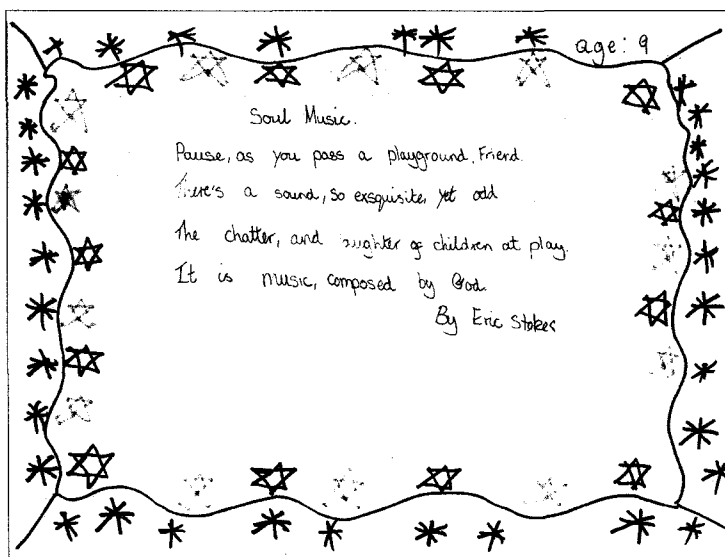 age: 9
Soul Music.
Pause, as you pass a playground, Friend.
There's a sound, so exsquisite, yet odd
The chatter, and laughter of children at play.
It is music, composed by God.
By Eric Stokes